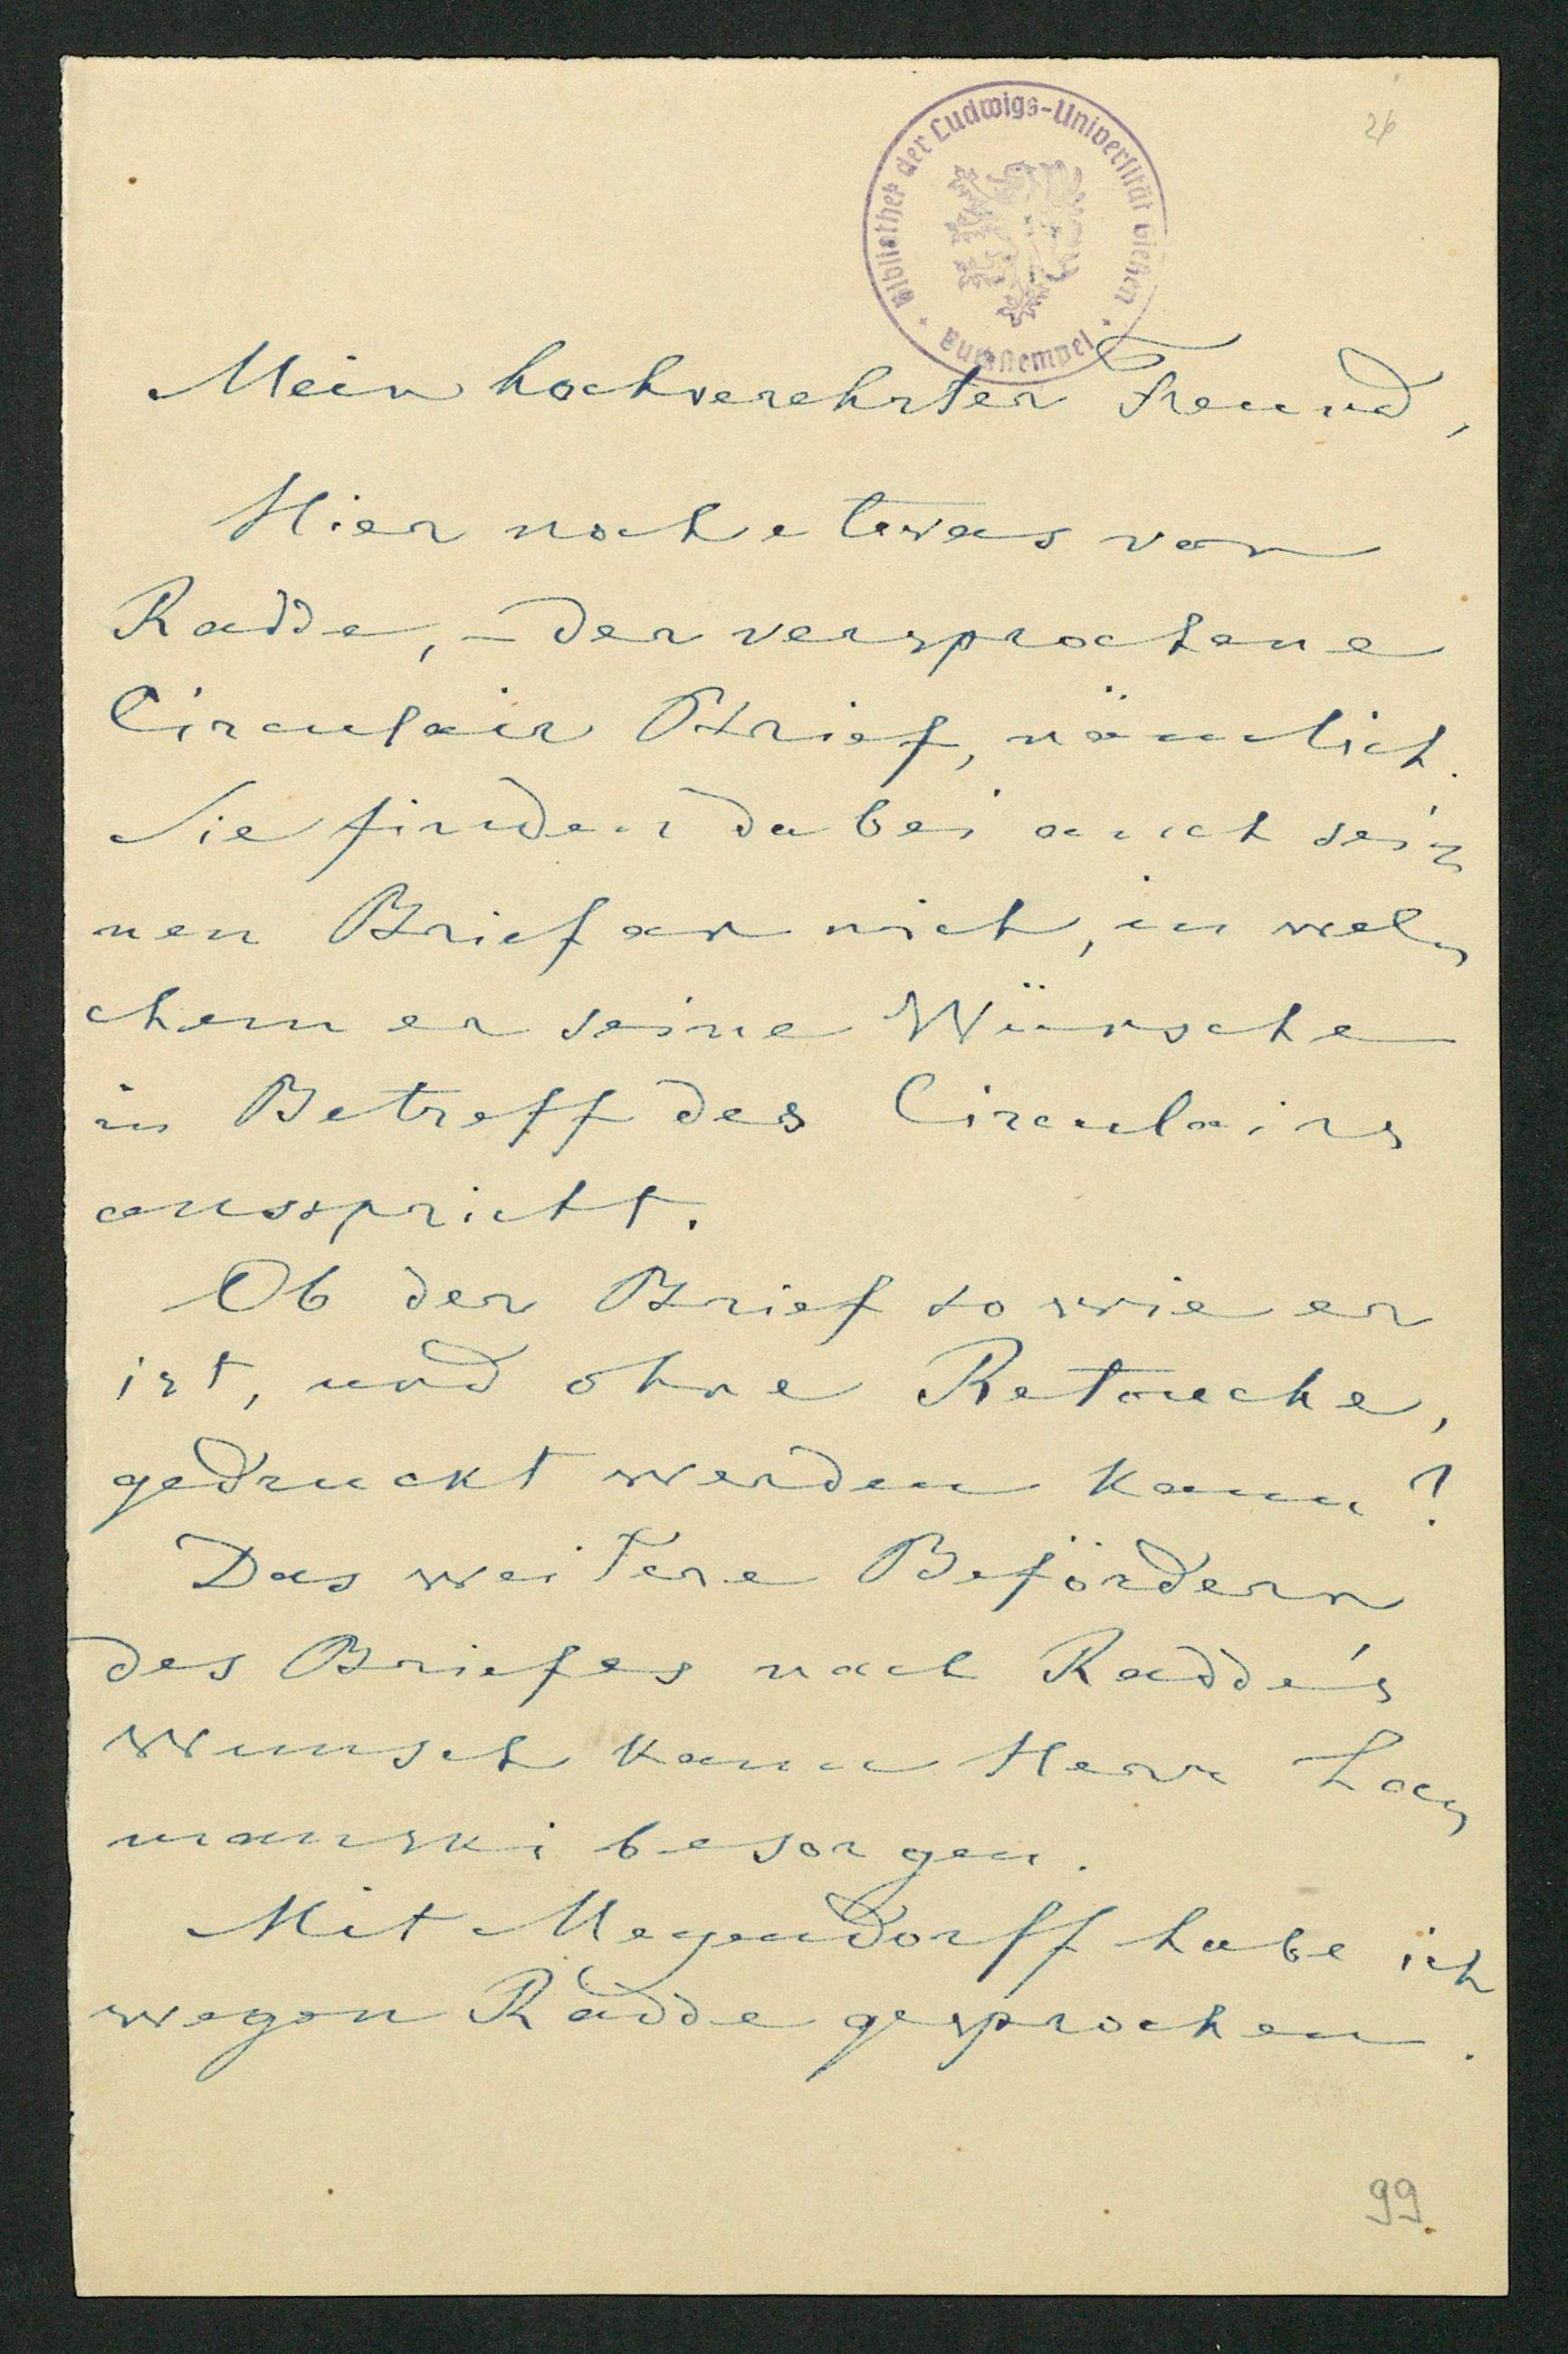 26
Bibliothek der Ludwigs-Universität Gießen
Mein hochverehrter Freund,
Hier noch etwas von
Radde, – der versprochene
Circulair Brief, nämlich.
Sie finden dabei auch sei-
nen Brief an mich, in wel-
chem er seine Wünsche
in Betreff des Circulairs
ausspricht.
Ob der Brief so wie er
ist, und ohne Retouche,
gedruckt werden kann?
Das weitere Befördern
des Briefes nach Radde's
Wunsch kann Herr La-
manski besorgen.
Mit Meyendorff habe ich
wegen Radde gesprochen.
99